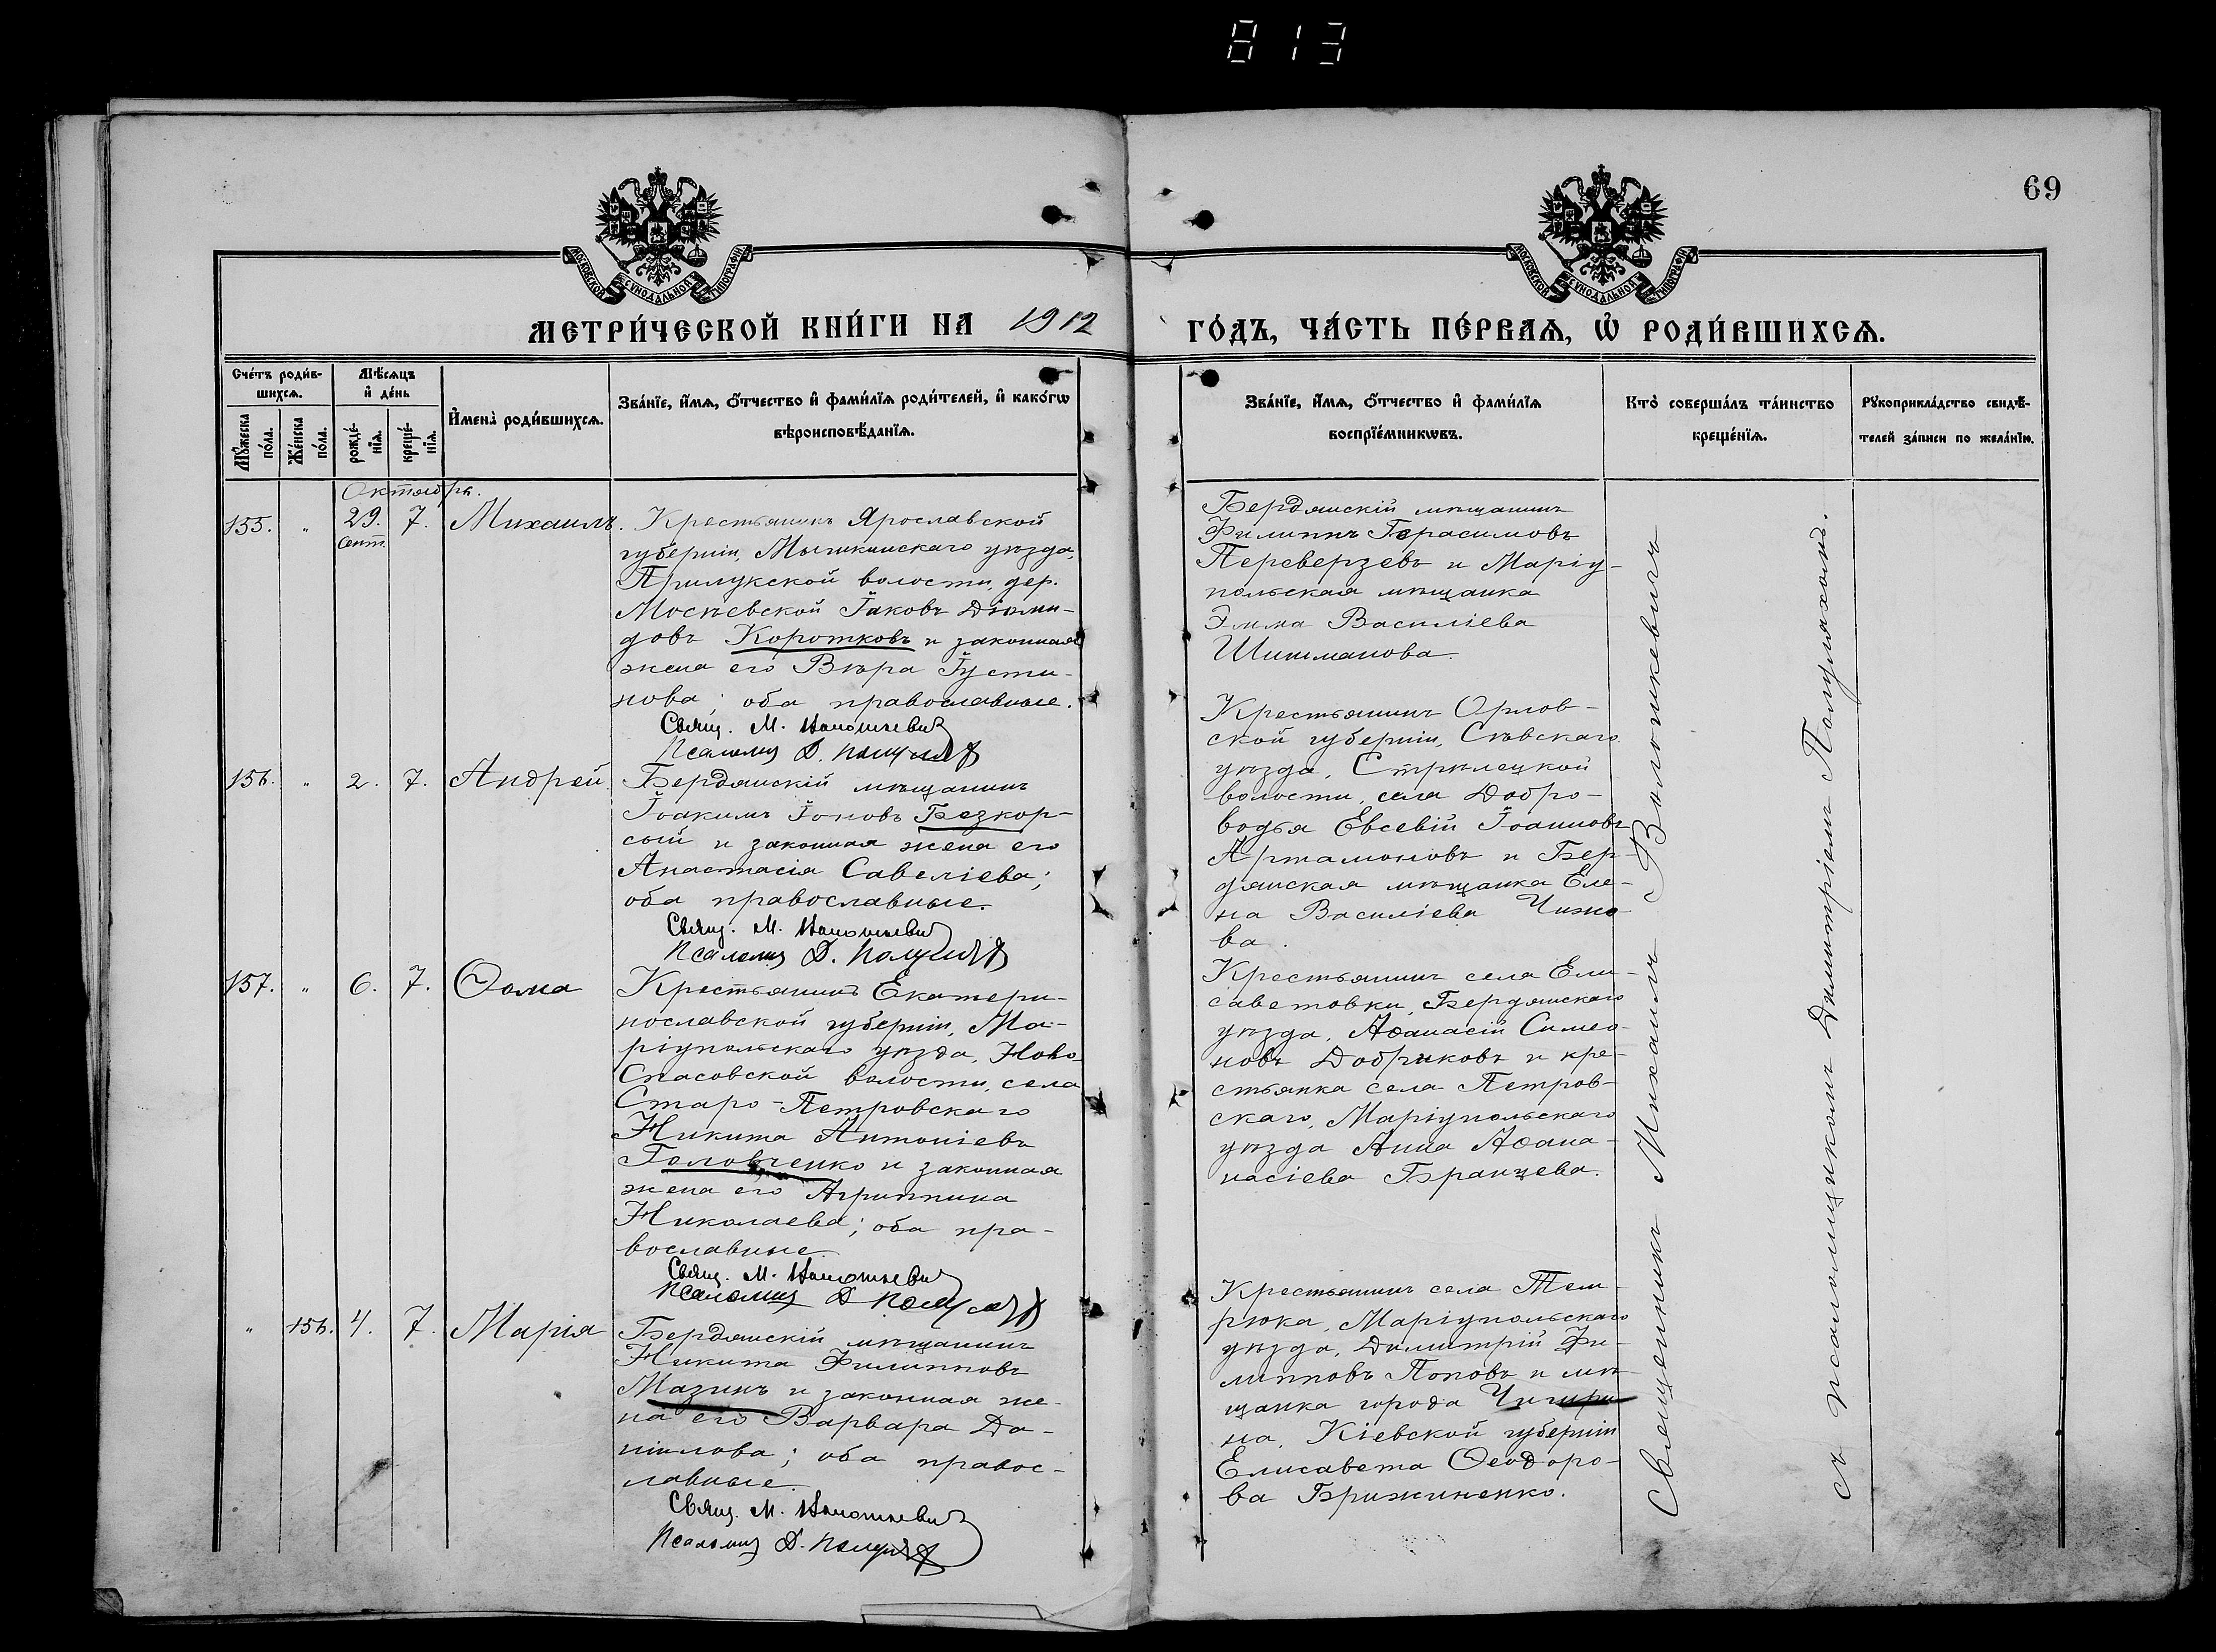 813
69
МОСКОВСКОЙ СѴНОДАЛЬНОЙ ТИПОГРАФІИ
МОСКОВСКОЙ СѴНОДАЛЬНОЙ ТИПОГРАФІИ
МЕТРИ́ЧЕСКОЙ КНИ́ГИ НА 1912
ГО́ДЪ, ЧА́СТЬ ПЕ́РВАѦ, Ѡ҆ РОДИ́ВШИХСѦ.
Сче́тъ роди́в-
шихсѧ.
Мꙋ́жеска
по́ла.
Же́нска
по́ла.
Мѣ́сѧцъ
и҆ де́нь
рожде́-
нїѧ.
креще́-
нїѧ.
И҆мена̀ роди́вшихсѧ.
Зва́нїе, и҆́мѧ, ѻ҆́тчество и҆ фами́лїѧ роди́телей, и҆ како́гѡ
вѣроисповѣ́данїѧ.
Зва́нїе, и҆́мѧ, ѻ҆́тчество и҆ фами́лїѧ
воспрїе́мникѡвъ.
Кто̀ соверша́лъ та́инство
креще́нїѧ.
Рꙋкоприкла́дство свидѣ́-
телей за́писи по жела́нїю.
Октября.
155. " 29. 7. Михаилъ.
Сент.
Крестьянинъ Ярославской
губерніи, Мышкинскаго уѣзда,
Прилукской волости, дер.
Мосѣевской Іаковъ Діоми-
довъ Коротковъ и законная
жена его Вѣра Іусти-
нова; оба православные.
Свящ. М. Волошкевич
Псаломщ Д. Полулях
Бердянскій мѣщанинъ
Филиппъ Герасимовъ
Переверзевъ и Маріу-
польская мѣщанка
Эмма Василіева
Шишманова.
156. " 2. 7. Андрей
Бердянскій мѣщанинъ
Іоакимъ Іоновъ Безкор-
сый и законная жена его
Анастасія Савеліева;
оба православные.
Свящ. М. Волошкевич
Псаломщ Д. Полулях
Крестьянинъ Орлов-
ской губерніи, Сѣвскаго
уѣзда, Стрѣлецкой
волости, села Добро-
водья Евсевій Іоанновъ
Артамоновъ и Бер-
дянская мѣщанка Еле-
на Василіева Чижо-
ва.
157. " 6. 7. Ѳома
Крестьянинъ Екатери-
нославской губерніи, Ма-
ріупольскаго уѣзда, Ново-
Спасовской волости, села
Старо-Петровскаго
Никита Антоніевъ
Головченко и законная
жена его Агриппина
Николаева; оба пра-
вославные.
Свящ. М. Волошкевич
Псаломщ Д Полулях
Крестьянинъ села Ели-
саветовки, Бердянскаго
уѣзда, Аѳанасій Симео-
новъ Добриковъ и кре-
стьянка села Петров-
скаго, Маріупольскаго
уѣзда Анна Аѳана-
насіева Бранцева.
" 156. 4. 7. Марія
Бердянскій мѣщанинъ
Никита Филипповъ
Мазинъ и законная же-
на его Варвара Да-
ніилова; оба правос-
лавные.
Свящ. М. Волошкевич
Псаломщ Д. Полулях
Крестьянинъ села Тем-
рюка, Маріупольскаго
уѣзда, Димитрій Фи-
липповъ Поповъ и мѣ-
щанка города Чигири-
на, Кіевской губерніи
Елисавета Ѳеодоро-
ва Брижиненко.
Священникъ Михаилъ Волошкевичъ
съ псаломщикомъ Димитріемъ Полуляхомъ.